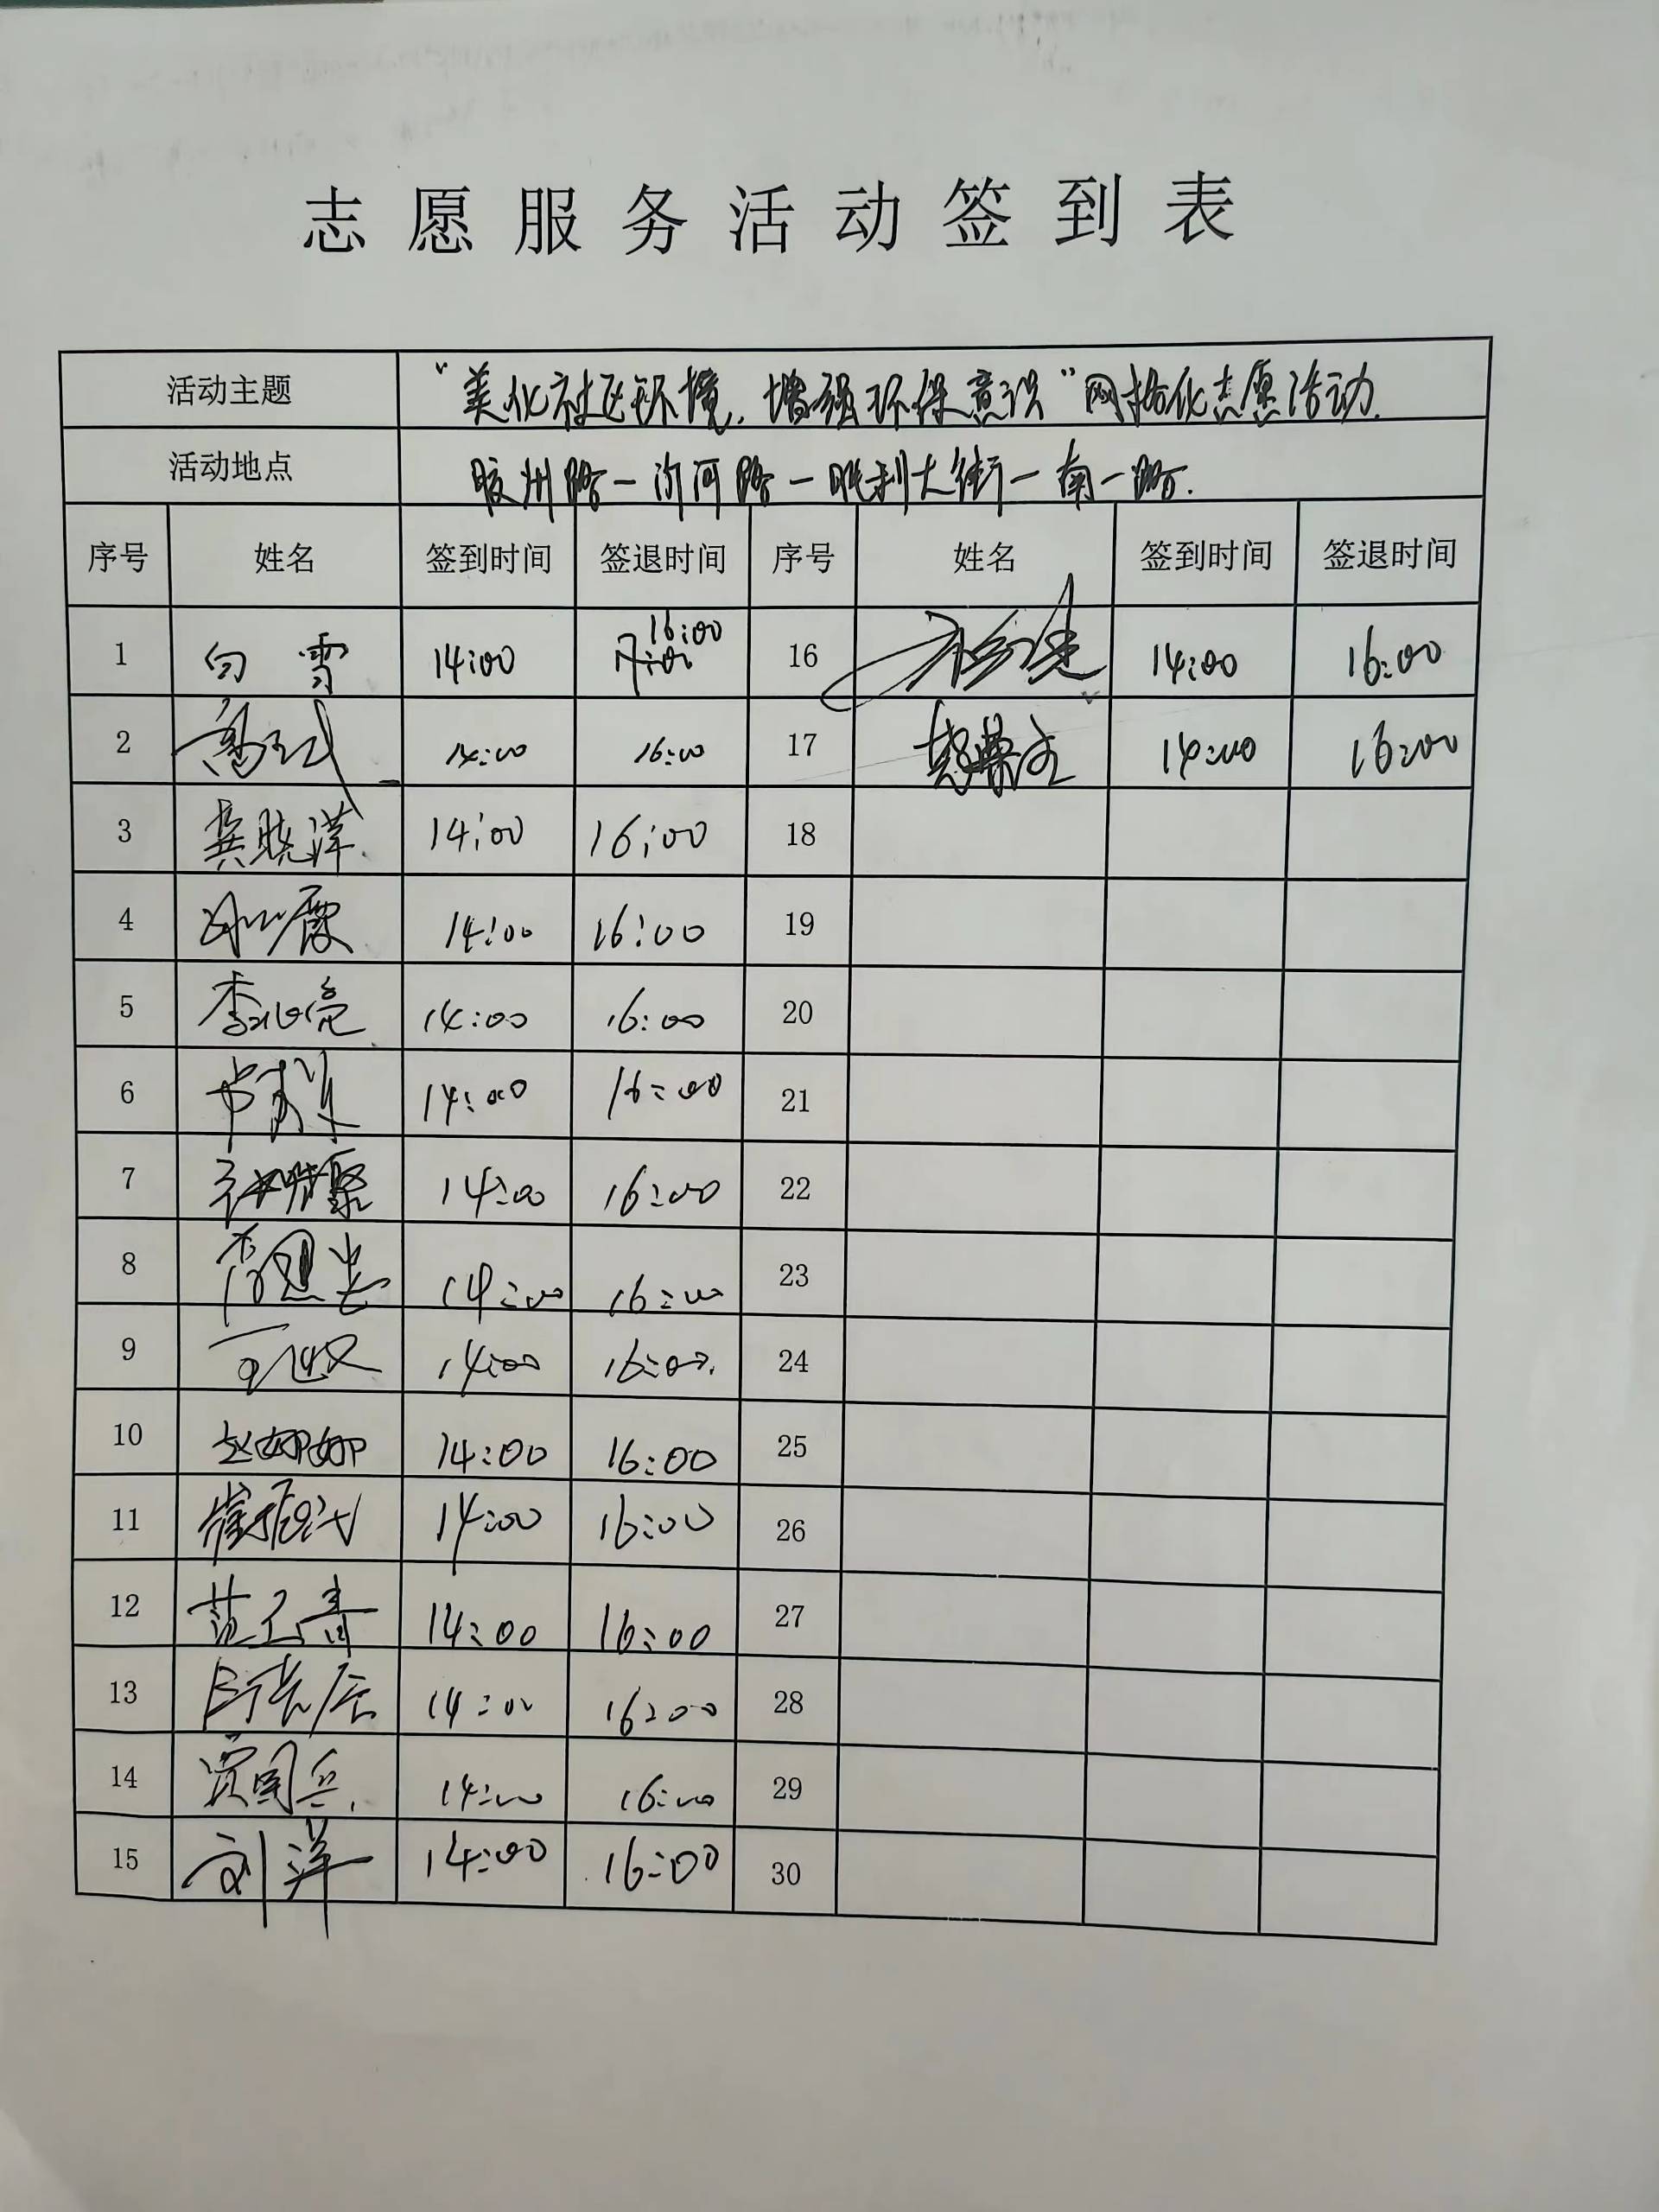 志愿服务活动签到表
活动主题 "美化社区环境,增强环保意识"网格化志愿活动.
活动地点 胶州路一汾河路一胜利大街一南一路.
序号 姓名 签到时间 签退时间 序号 姓名 签到时间 签退时间
1 白雪 14:00 16:00 16 14:00 16:00
2 14:00 16:00 17 14:00 16:00
3 龚晓洋. 14:00 16:00 18
4 14:00 16:00 19
5 14:00 16:00 20
6 14:00 16:00 21
7 14:00 16:00 22
8 14:00 16:00 23
9 14:00 16:00. 24
10 赵娜娜 14:00 16:00 25
11 14:00 16:00 26
12 14:00 16:00 27
13 14:00 16:00 28
14 14:00 16:00 29
15 刘洋 14:00 16:00 30